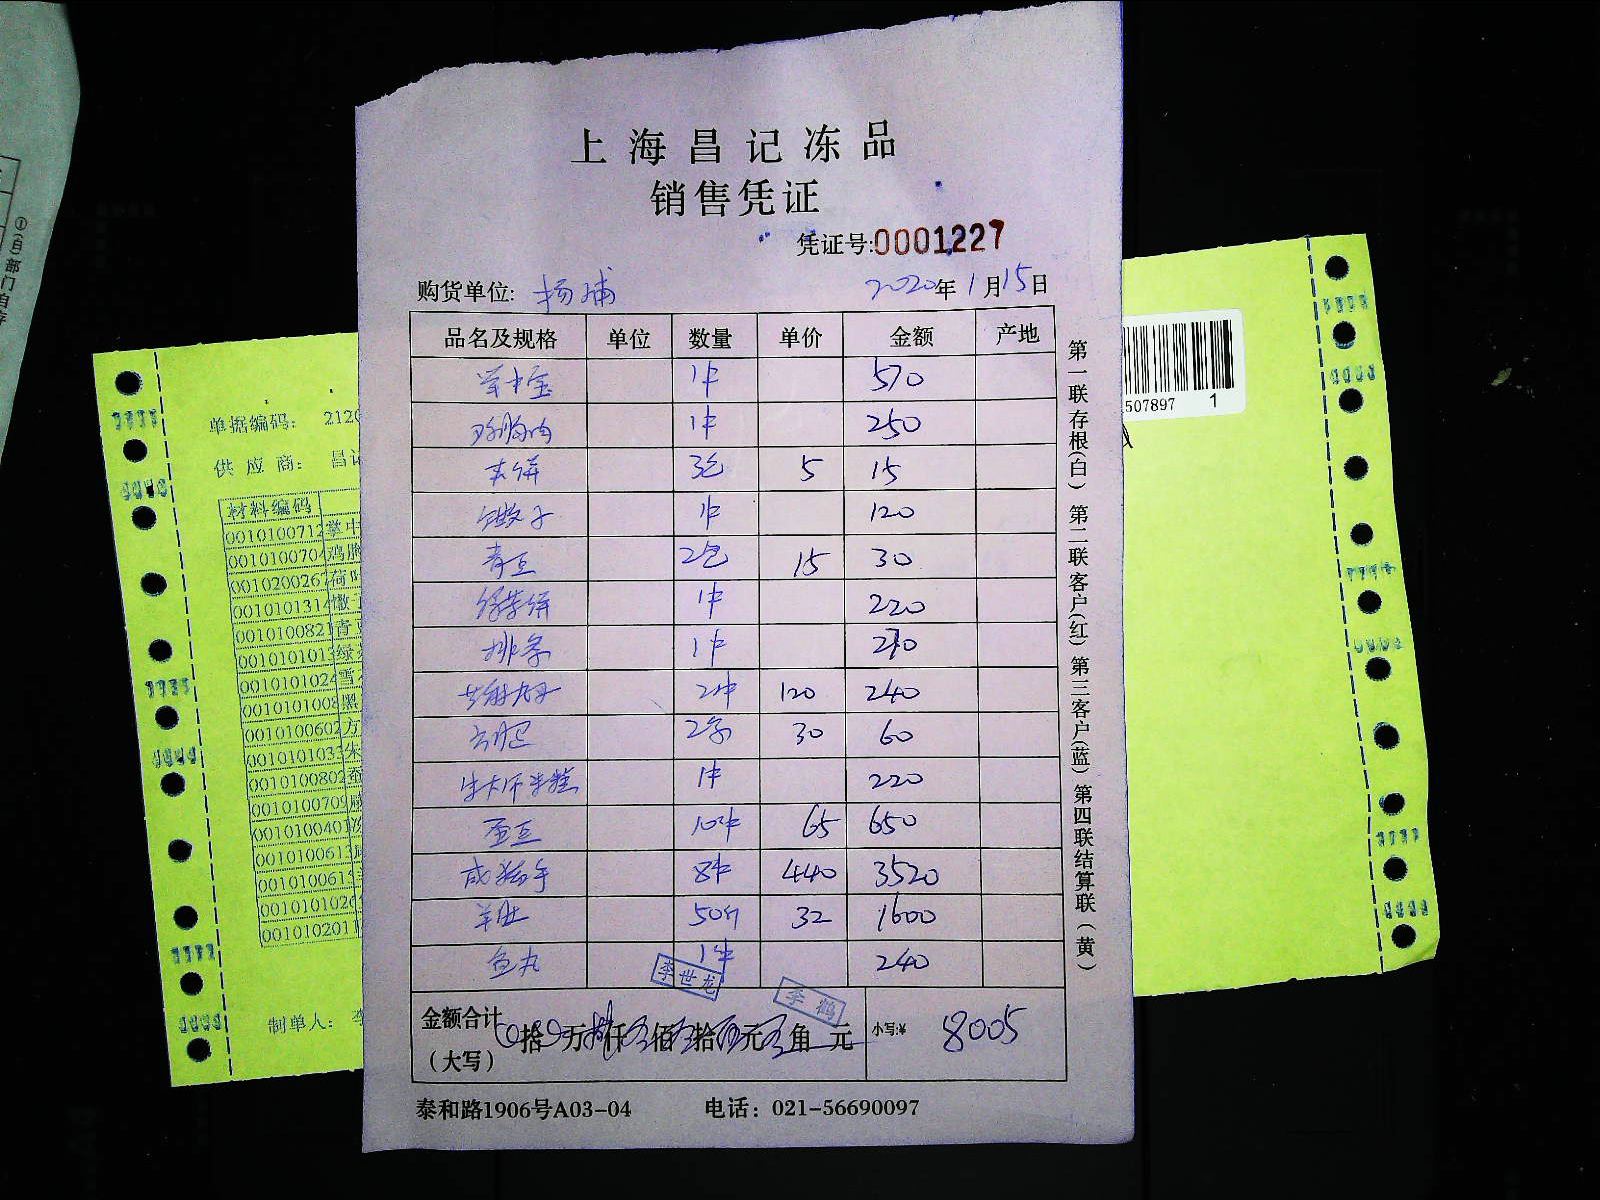 上海昌记冻品
销售凭证
凭证号:0001227
购货单位: 杨浦 2020年1月15日
品名及规格 单位 数量 单价 金额 产地
掌中宝 1件 570
鸡胸肉 1件 250
夹饼 3包 5 15
馓子 1件 120
青豆 2包 15 30
绿茶饼 1件 220
排条 1件 270
2件 120 240
2条 30 60
1件 220
蚕豆 10件 65 650
咸猪手 8件 440 3520
羊肚 50斤 32 1600
鱼丸 1件 240
李世龙
李鹤
金额合计
(大写)
拾 万 仟 佰 拾 元 角 元 小写:¥ 8005
泰和路1906号A03-04 电话：021-56690097
第一联存根(白) 第二联客户(红) 第三客户(蓝) 第四联结算联(黄)
单据编码： 212
供应商： 昌
材料编码
0010100712 掌中
001010070 鸡
0010200267 荷
001010131
001010082 青
001010101 绿
001010102 雪
001010100 黑
001010060 方
001010103 朱
001010080
001010070
001010040
001010061
001010061
001010102
001010201
制单人： 李
507897 1
①(白)部门自存